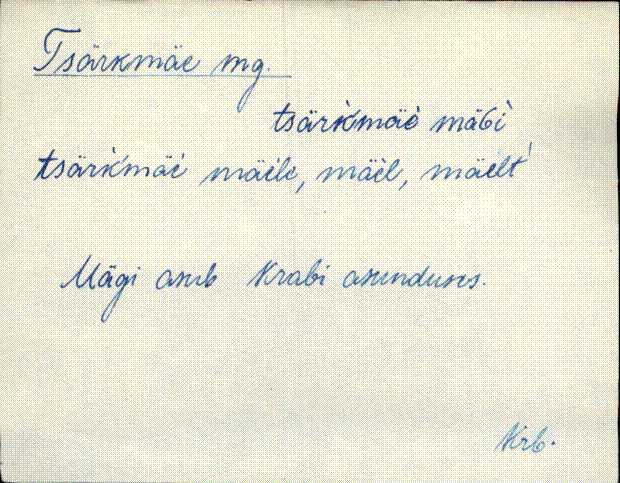 Tsärkmäe mg.
tsärk̀mäè mäGì
tsärk̀mäe mäele, mäèl, mäelt
Mägi asub Krabi asunduses.
Krb.